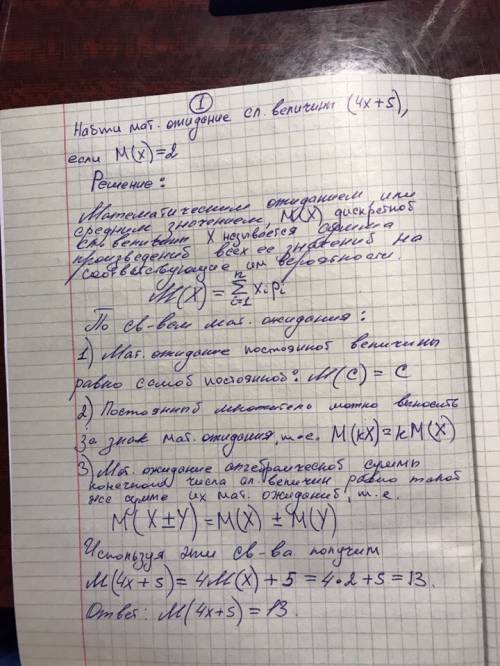 1
Найти мат. ожидание сл. величины (4x+5),
если M(X)=2
Решение:
Математическим ожиданием или
средним значением M(X) дискретной
сл. величины X называется сумма
произведений всех ее значений на
соответствующие им вероятности.
M(X) = Σ xᵢ pᵢ
По св-вам мат. ожидания:
1) Мат. ожидание постоянной величины
равно самой постоянной: M(C) = C
2) Постоянный множитель можно выносить
за знак мат. ожидания, т.е. M(kX)=kM(X)
3) Мат. ожидание алгебраической суммы
конечного числа сл. величин равно такой
же сумме их мат. ожиданий, т.е.
M(X±Y)=M(X) ± M(Y)
Используя эти св-ва получим
M(4x+5)= 4M(X)+5 = 4·2+5 = 13.
Ответ: M(4x+5) = 13.